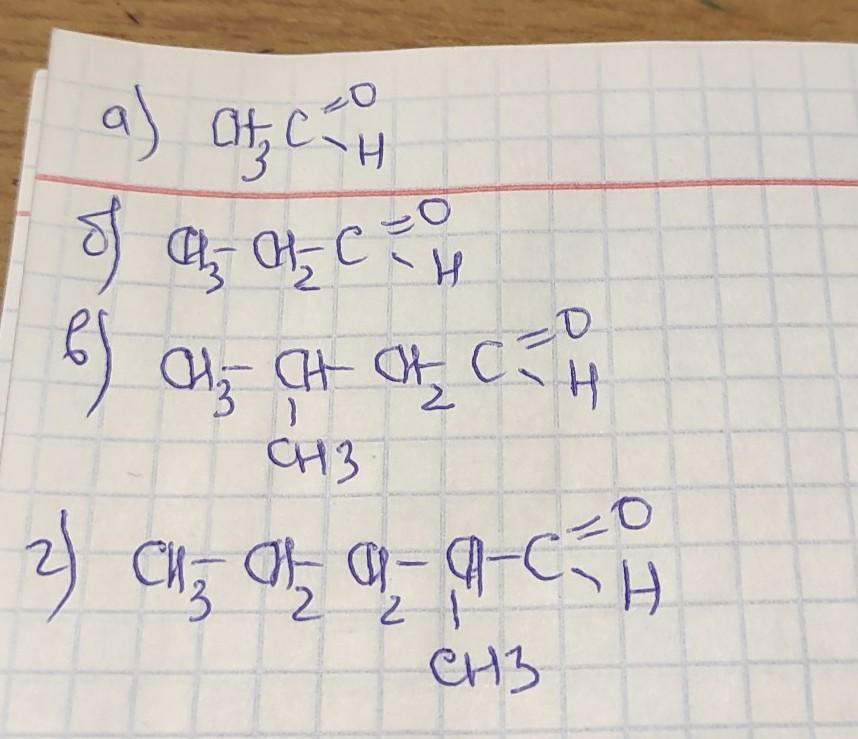 а) CH3-C=O
-H
б) CH3-CH2-C=O
-H
в) CH3-CH-CH2-C=O
-H
CH3
г) CH3-CH2-CH2-CH-C=O
-H
CH3